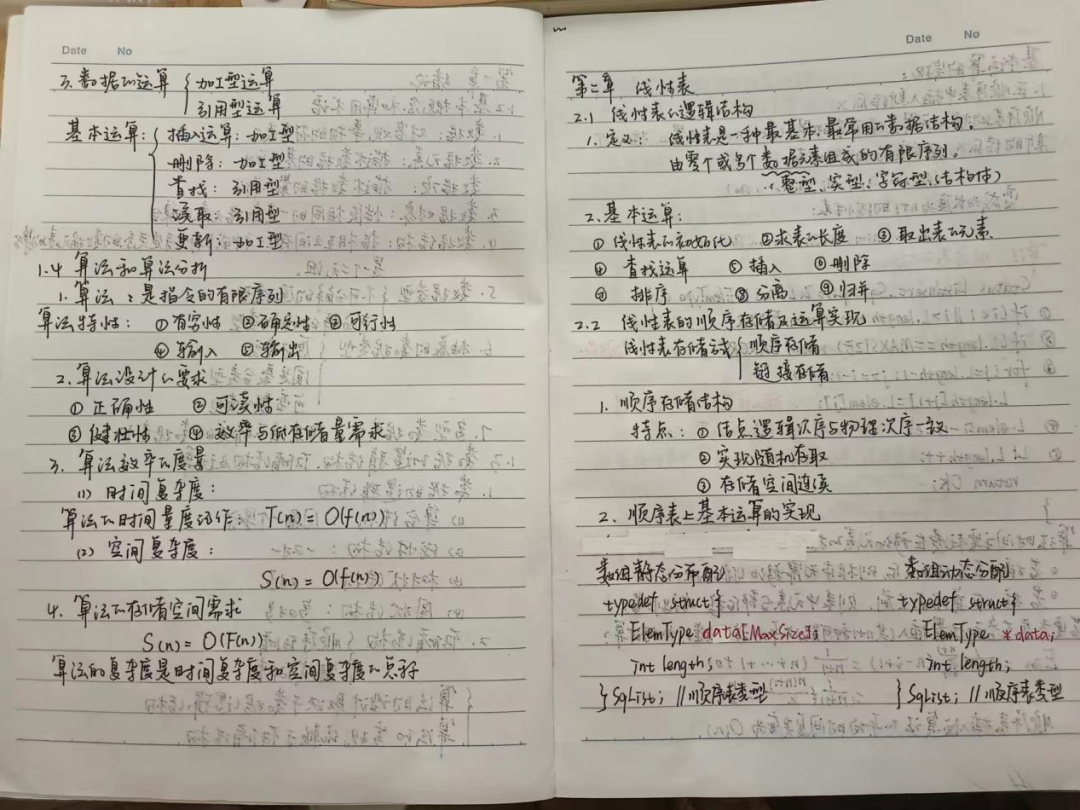 Date No
3. 数据的运算 { 加工型运算
引用型运算
基本运算: { 插入运算: 加工型
删除: 加工型
查找: 引用型
读取: 引用型
更新: 加工型
1.4 算法和算法分析
1. 算法: 是指令的有限序列
算法特性: ①有穷性 ②确定性 ③可行性
④输入 ⑤输出
2. 算法设计的要求
① 正确性 ② 可读性
③ 健壮性 ④ 效率与低存储量需求
3. 算法效率的度量
(1) 时间复杂度:
算法的时间量度记作: T(n) = O(f(n))
(2) 空间复杂度:
S(n) = O(f(n))
4. 算法的存储空间需求
S(n) = O(F(n))
算法的复杂度是时间复杂度和空间复杂度的总称
Date No
第二章 线性表
2.1 线性表的逻辑结构
1. 定义: 线性表是一种最基本, 最常用的数据结构。
由零个或多个数据元素组成的有限序列。
(整型, 实型, 字符型, 结构体)
2. 基本运算:
① 线性表的初始化 ② 求表的长度 ③ 取出表的元素
④ 查找运算 ⑤ 插入 ⑥ 删除
⑦ 排序 ⑧ 分离 ⑨ 归并
2.2 线性表的顺序存储及运算实现
线性表存储方式 { 顺序存储
链接存储
1. 顺序存储结构
特点: ① 结点逻辑次序与物理次序一致
② 实现随机存取
③ 存储空间连续
2. 顺序表上基本运算的实现
数组静态分配 数组动态分配
typedef struct{ typedef struct{
ElemType data[MaxSize]; ElemType *data;
int length; int length;
} SqList; //顺序表类型 } SqList; //顺序表类型